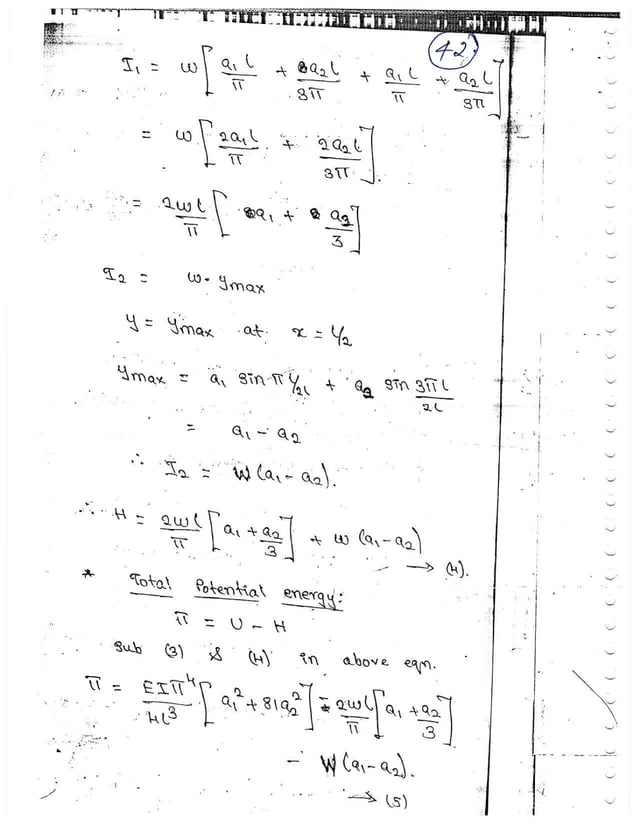 42
I₁ = ω[a₁l/π + a₂l/3π + a₁l/π + a₂l/3π]
= ω[2a₁l/π + 2a₂l/3π].
= 2ωl/π [a₁ + a₂/3]
I₂ = ω. ymax
y = ymax at x = l/2
ymax = a₁ sin π l/2l + a₂ sin 3πl/2l
= a₁ - a₂
∴ I₂ = W(a₁ - a₂).
∴ H = 2ωl/π [a₁ + a₂/3] + ω(a₁ - a₂) → (4).
* Total Potential energy:
π = U - H
Sub (3) & (4) in above eqn.
π = EIπ⁴/4l³ [a₁² + 81a₂²] - 2ωl/π [a₁ + a₂/3]
- W(a₁ - a₂).
→ (5)